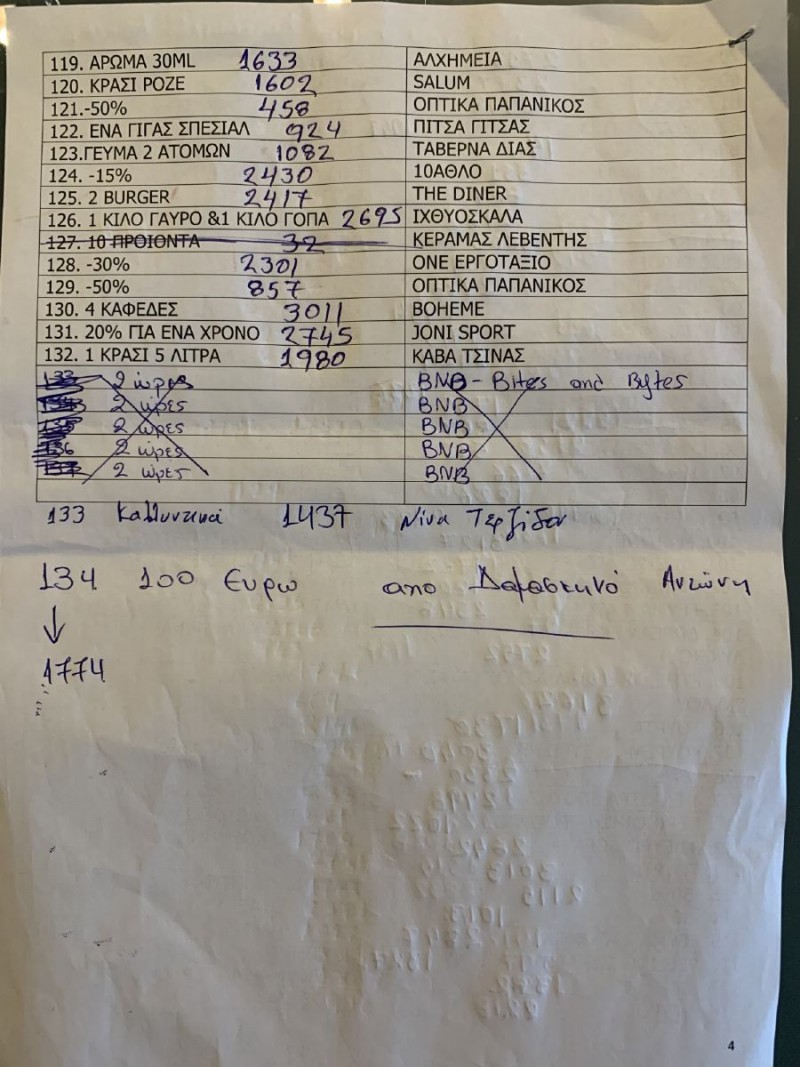 119. ΑΡΩΜΑ 30ML 1633 ΑΛΧΗΜΕΙΑ
120. ΚΡΑΣΙ ΡΟΖΕ 1602 SALUM
121.-50% 458 ΟΠΤΙΚΑ ΠΑΠΑΝΙΚΟΣ
122. ΕΝΑ ΓΙΓΑΣ ΣΠΕΣΙΑΛ 924 ΠΙΤΣΑ ΓΙΤΣΑΣ
123.ΓΕΥΜΑ 2 ΑΤΟΜΩΝ 1082 ΤΑΒΕΡΝΑ ΔΙΑΣ
124. -15% 2430 10ΑΘΛΟ
125. 2 BURGER 2417 THE DINER
126. 1 ΚΙΛΟ ΓΑΥΡΟ &1 ΚΙΛΟ ΓΟΠΑ 2695 ΙΧΘΥΟΣΚΑΛΑ
127. 10 ΠΡΟΙΟΝΤΑ 32 ΚΕΡΑΜΑΣ ΛΕΒΕΝΤΗΣ
128. -30% 2301 ΟΝΕ ΕΡΓΟΤΑΞΙΟ
129. -50% 857 ΟΠΤΙΚΑ ΠΑΠΑΝΙΚΟΣ
130. 4 ΚΑΦΕΔΕΣ 3011 BOHEME
131. 20% ΓΙΑ ΕΝΑ ΧΡΟΝΟ 2745 JONI SPORT
132. 1 ΚΡΑΣΙ 5 ΛΙΤΡΑ 1980 ΚΑΒΑ ΤΣΙΝΑΣ
133 2 ώρες BNB - Bites and Bytes
134 2 ώρες BNB
135 2 ώρες BNB
136 2 ώρες BNB
137 2 ώρες BNB
133 Καλλυντικά 1437 Νίνα Τερζίδου
134 100 Ευρω απο Δαμασκηνό Αντώνη
↓
1774
4